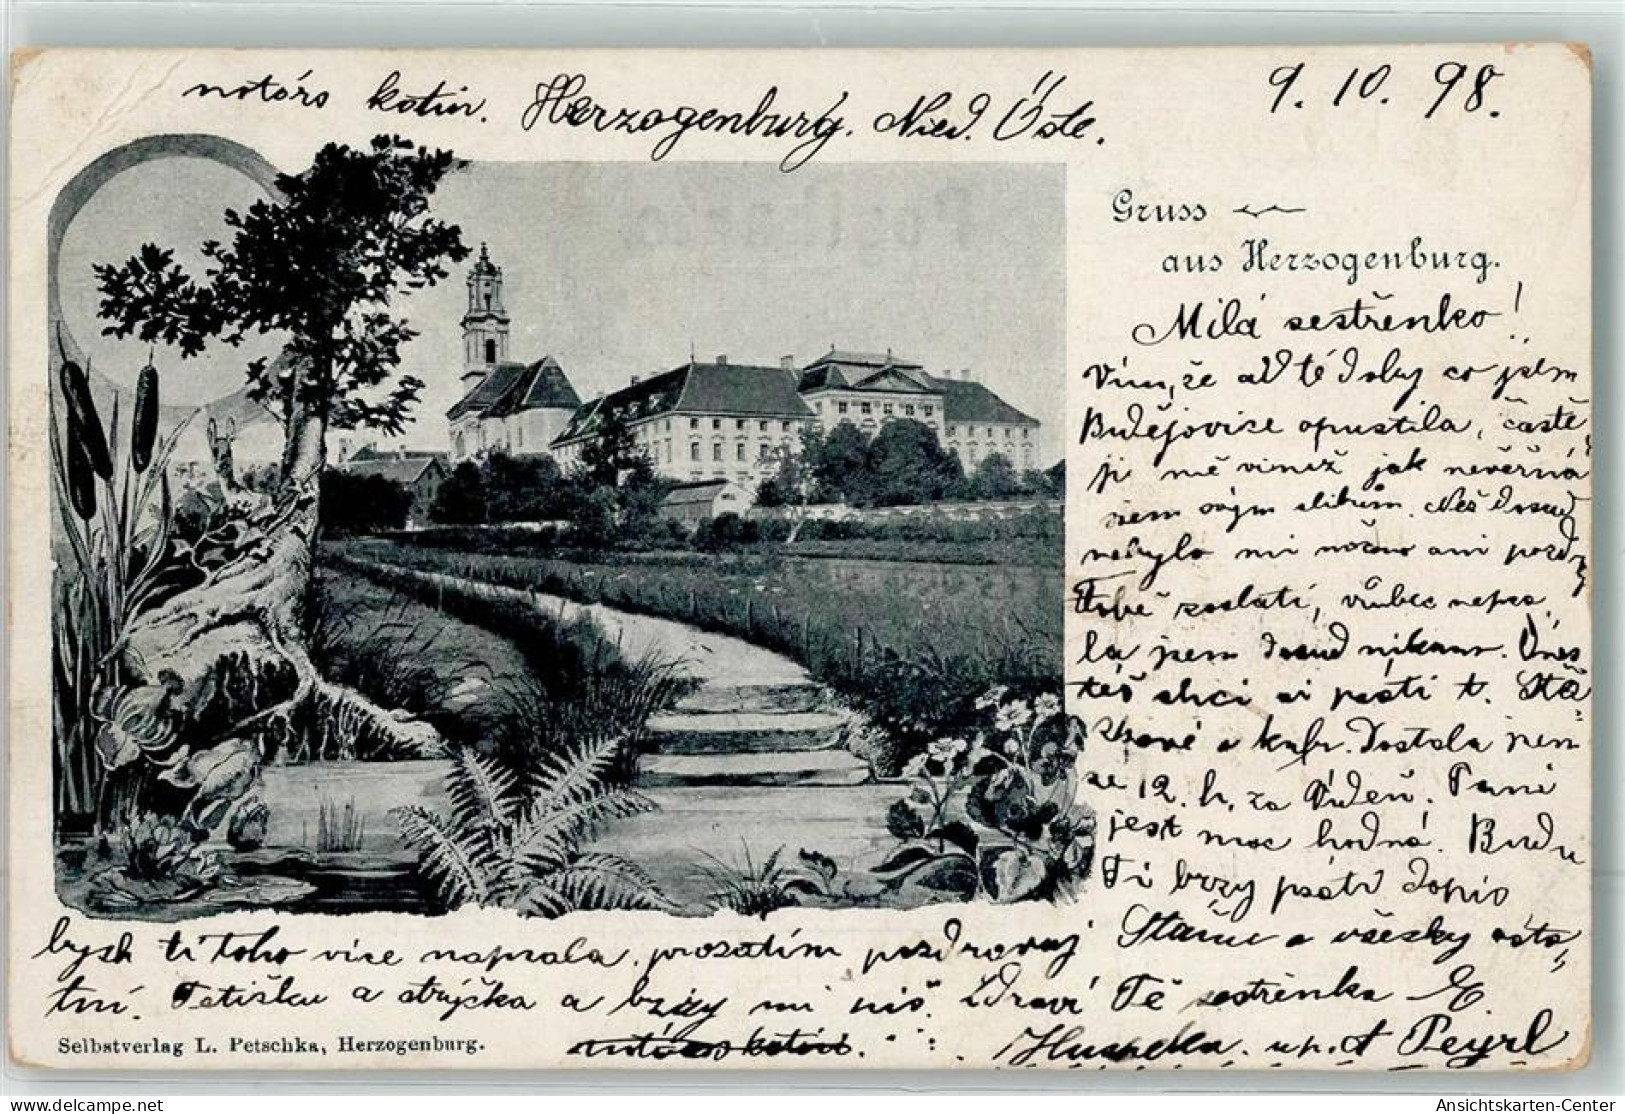 9. 10. 98.
Herzogenburg. Nied. Öste.
Gruss
aus Herzogenburg.
Milá sestřenko!
Vím, že od té doby co jsem
Budějovice opustila, častě
ji mě viníš jak nevěrná
jsem svým slibům. Než dosud
nebylo mi možno ani pozdr
Tobě zaslati, vůbec nepsa
la jsem dosud nikam. Dnes
též chci si psáti
Dostala jsem
se 12. h. za Vídeň. Paní
jest moc hodná. Budu
Ti brzy psáti dopis
bych ti toho více napsala. prozatím pozdravuj Stařím a všecky osta
tní. Tetišku a strýčka a brzy mi piš. Zdraví Tě sestřenka
Peyrl
Selbstverlag L. Petschka, Herzogenburg.
oldthing.de
Ansichtskarten-Center